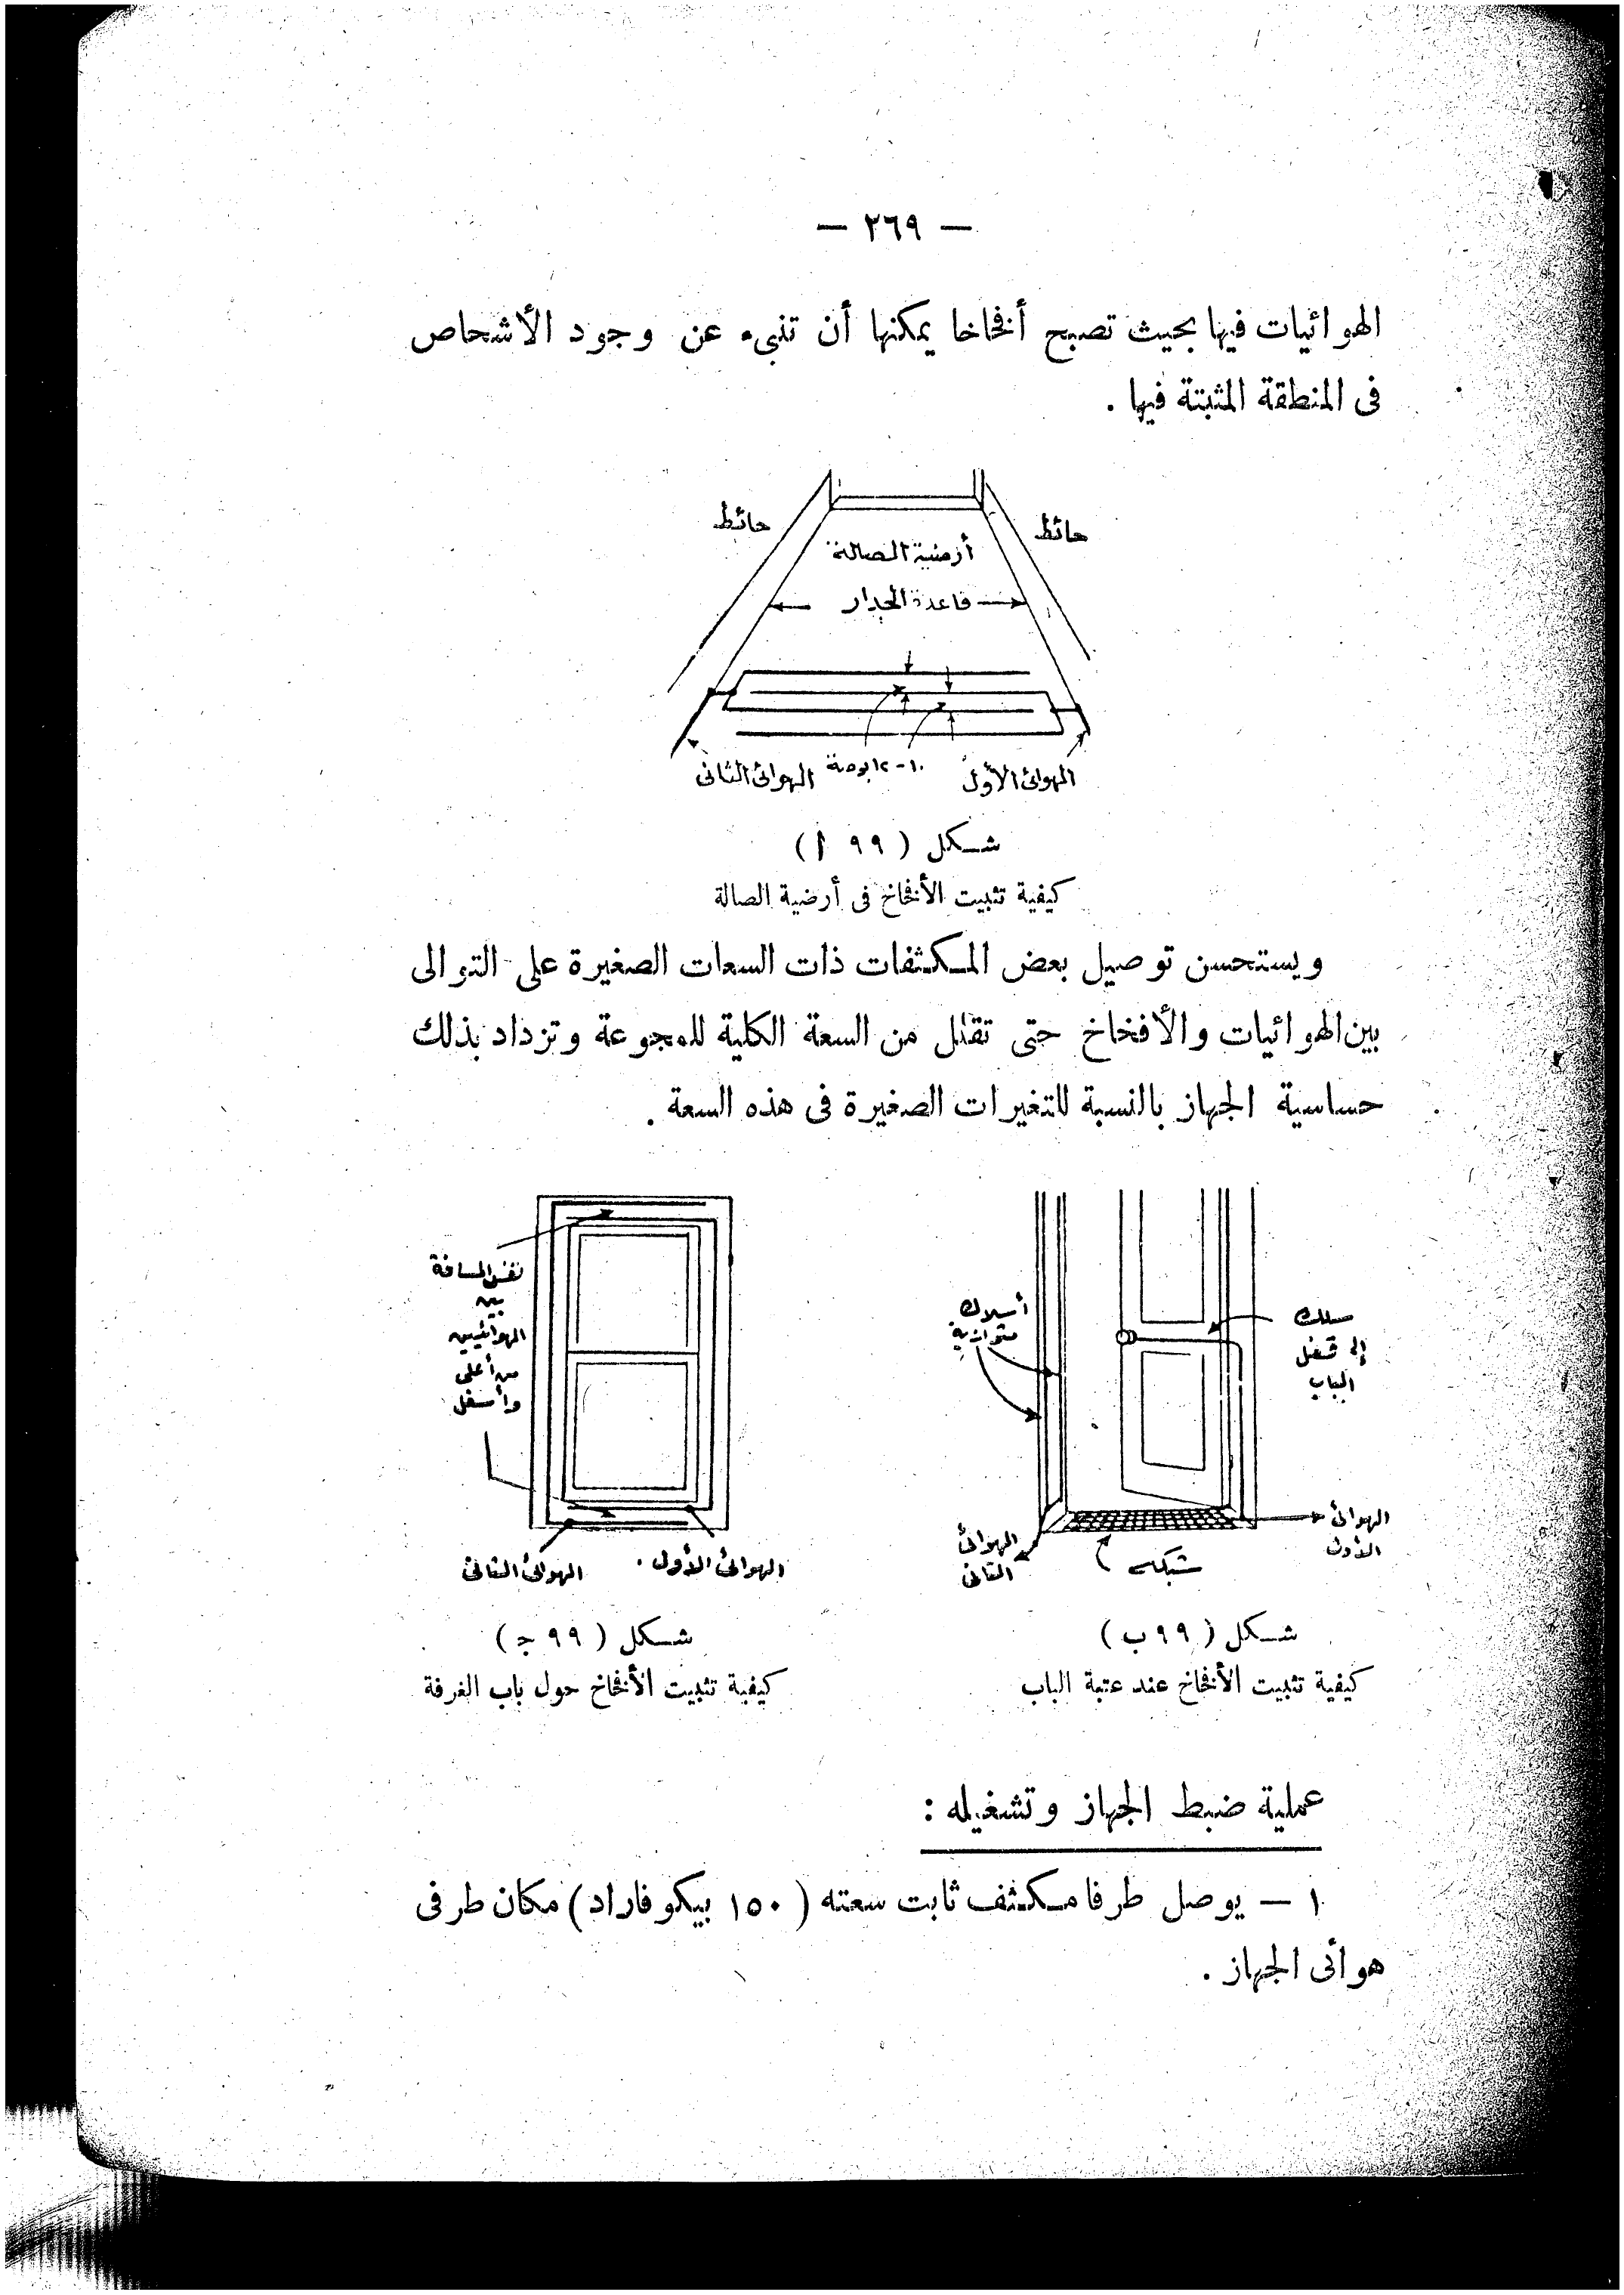 — ٢٦٩ —
الهوائيات فيها بحيث تصبح أفخاخا يمكنها أن تنبىء عن وجود الأشحاص
فى المنطقة المثبتة فيها .
حائط
حائط
أرضية الصالة
قاعدة الجدار
الهوائى الأول
١٠-١٢ بوصة
الهوائى الثانى
شكل ( ٩٩ أ )
كيفية تثبيت الأفخاخ فى أرضية الصالة
ويستحسن توصيل بعض المكثفات ذات السعات الصغيرة على التوالى
بين الهوائيات والأفخاخ حتى تقلل من السعة الكلية للمجوعة وتزداد بذلك
حساسية الجهاز بالنسبة للتغيرات الصغيرة فى هذه السعة .
سلك
إلى قفل
الباب
أسلاك
متوازية
الهوائى
الأول
شبكه
الهوائى
الثانى
شكل ( ٩٩ ب )
كيفية تثبيت الأفخاخ عند عتبة الباب
نفس المسافة
بين
الهوائيين
من أعلى
وأسفل
الهوائى الأول .
الهوائى الثانى
شكل ( ٩٩ ج )
كيفية تثبيت الأفخاخ حول باب الغرفة
عملية ضبط الجهاز وتشغيله :
١ — يوصل طرفا مكثف ثابت سعته ( ١٥٠ بيكو فاراد ) مكان طرفى
هوائى الجهاز .